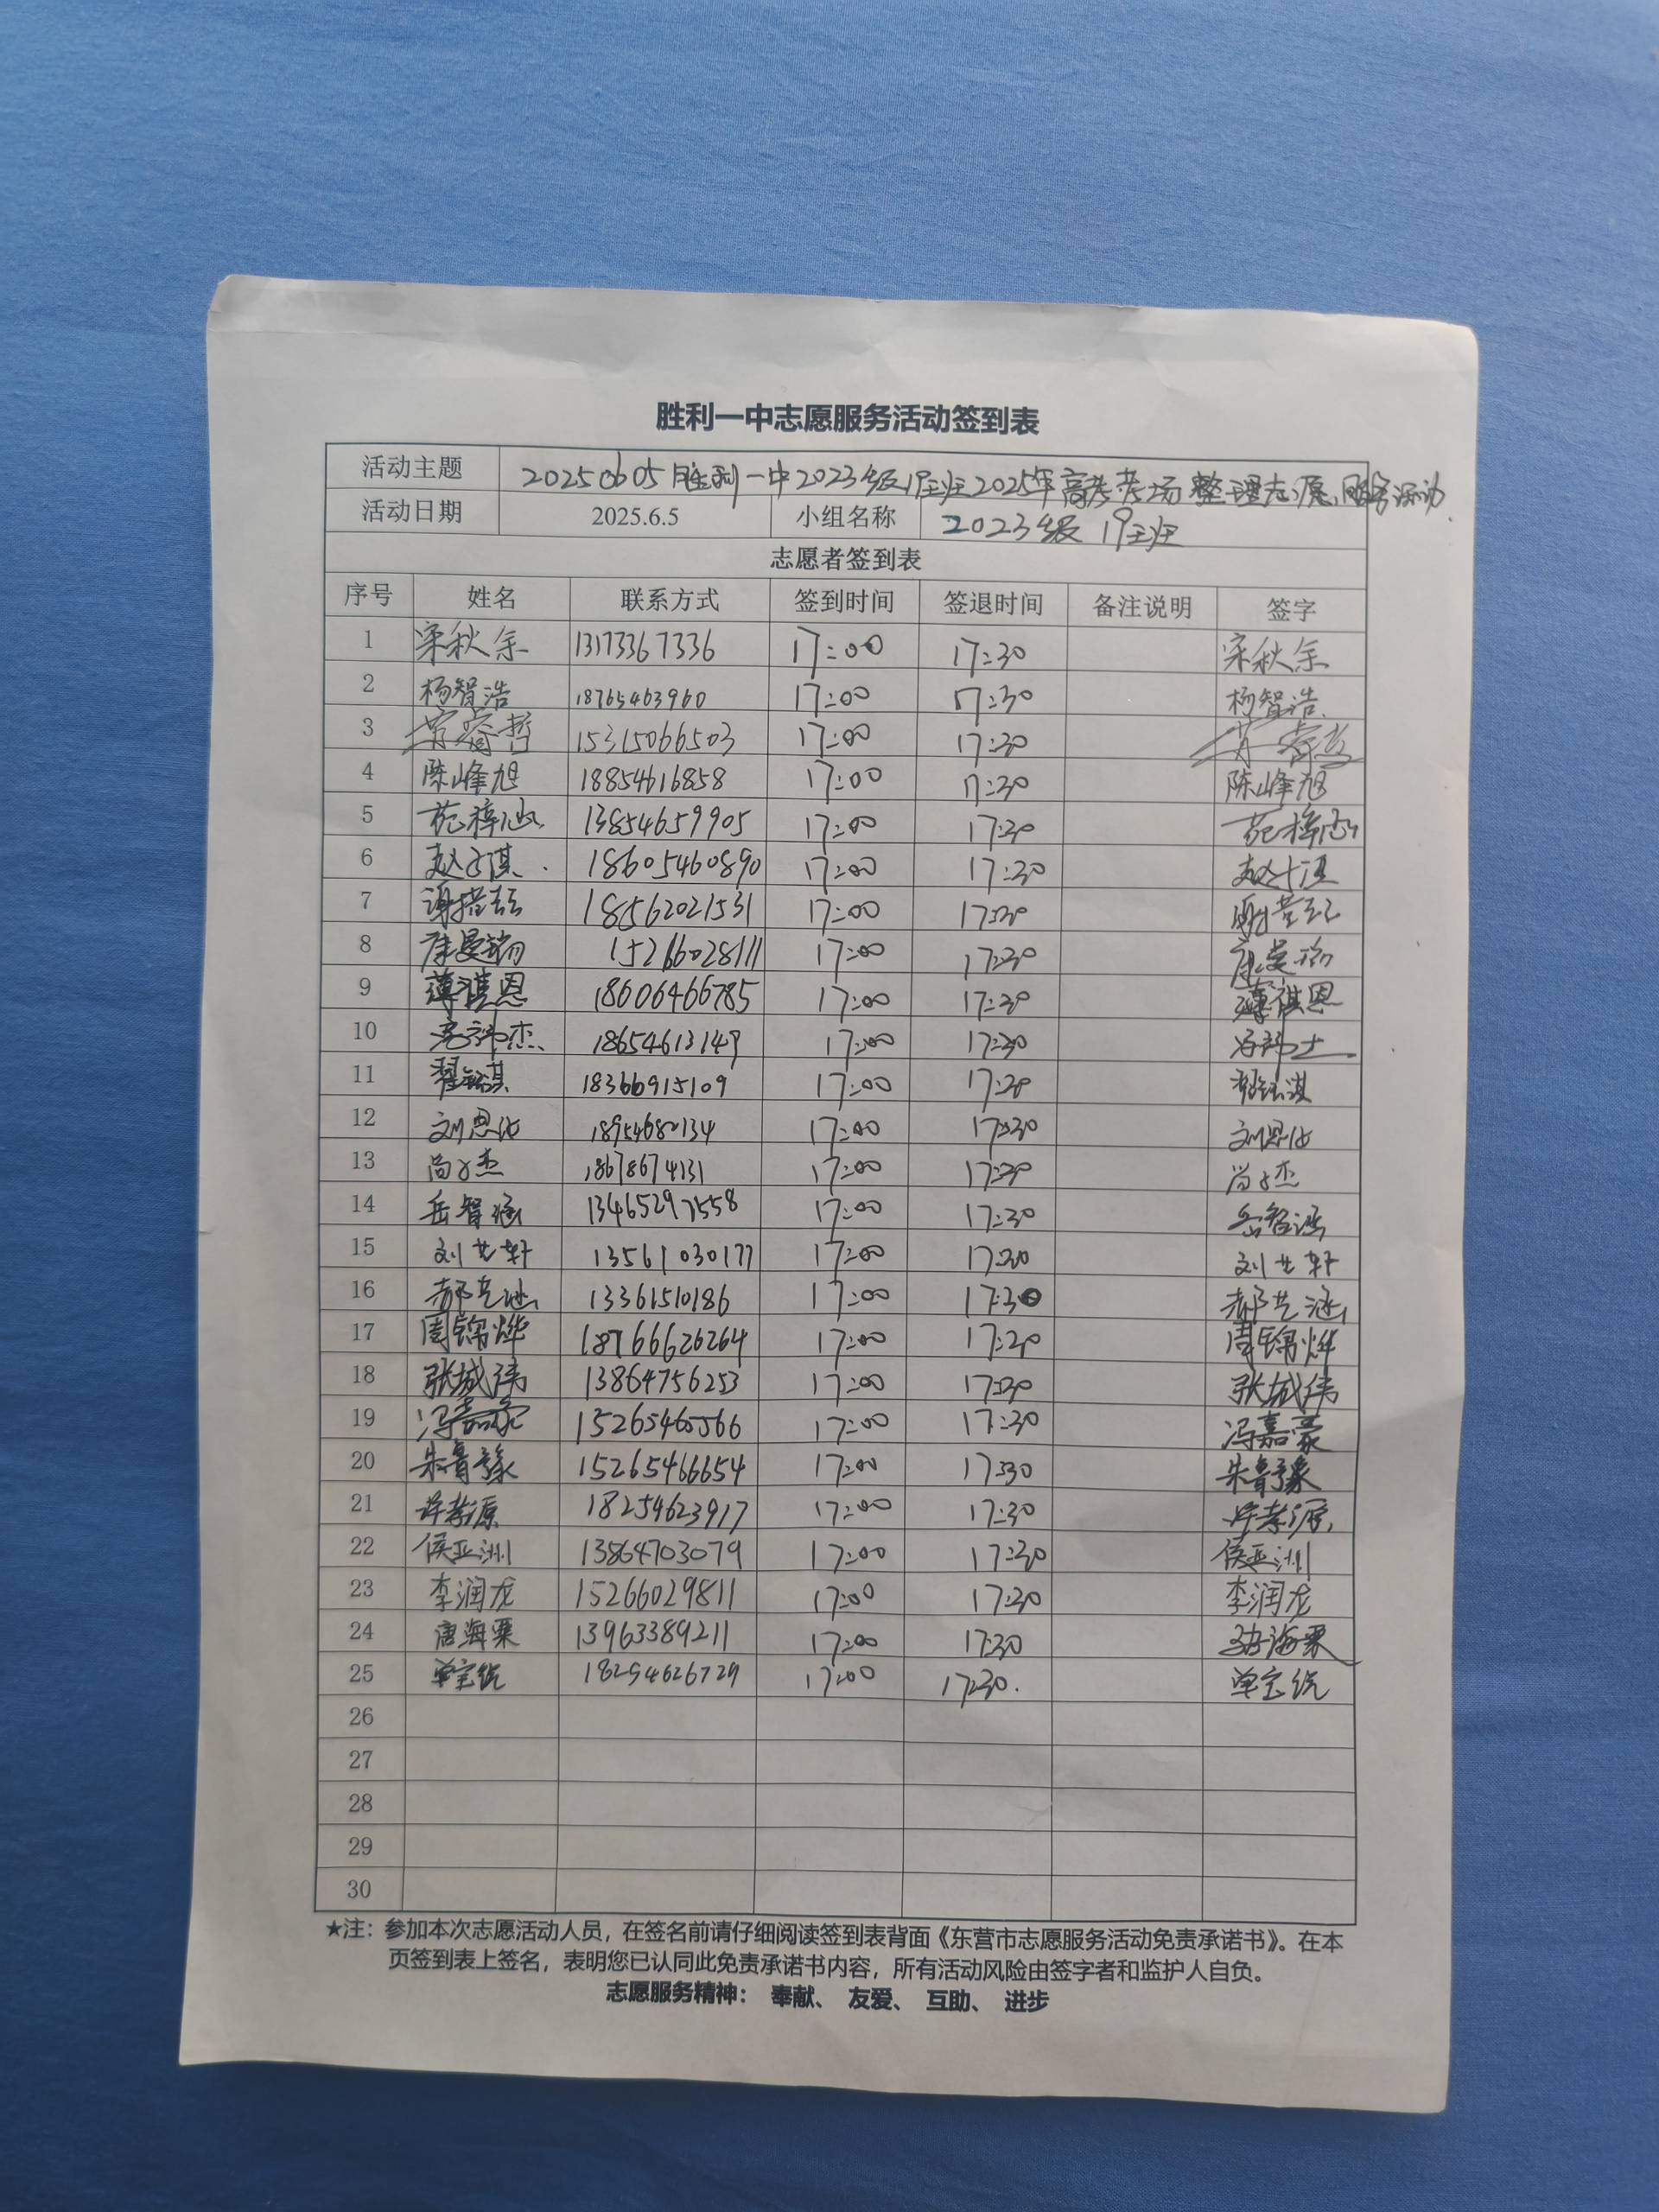 胜利一中志愿服务活动签到表
活动主题 20250605胜利一中2023级19班2025年高考考场整理志愿服务活动
活动日期 2025.6.5 小组名称 2023级19班
志愿者签到表
序号 姓名 联系方式 签到时间 签退时间 备注说明 签字
1 宋秋余 13173367336 17:00 17:30 宋秋余
2 杨智浩 18765463960 17:00 17:30 杨智浩
3 睿哲 15315066503 17:00 17:30
4 陈峰旭 18854616858 17:00 17:30 陈峰旭
5 苑梓涵 13854659905 17:00 17:30 苑梓涵
6 赵子淇 18605460890 17:00 17:30 赵子淇
7 谢 18562021531 17:00 17:30 谢
8 康曼 15266028111 17:00 17:30 康曼
9 薄祺恩 18606466785 17:00 17:30 薄祺恩
10 杰 18654613149 17:00 17:30
11 翟钰淇 18366915109 17:00 17:30 翟钰淇
12 刘恩 18954682134 17:00 17:30 刘恩
13 尚子杰 18678674131 17:00 17:30 尚子杰
14 岳智涵 13465297558 17:00 17:30 岳智涵
15 刘艺轩 13561030177 17:00 17:30 刘艺轩
16 郝艺涵 13361510186 17:00 17:30 郝艺涵
17 周锦烨 18766626264 17:00 17:30 周锦烨
18 张城伟 13864756253 17:00 17:30 张城伟
19 冯嘉豪 15265465566 17:00 17:30 冯嘉豪
20 朱鲁豫 15265466654 17:00 17:30 朱鲁豫
21 许孝源 18254623917 17:00 17:30 许孝源
22 侯亚洲 13864703079 17:00 17:30 侯亚洲
23 李润龙 15266029811 17:00 17:30 李润龙
24 唐海粟 13963389211 17:00 17:30 唐海粟
25 单宝悦 18254626729 17:00 17:30. 单宝悦
26
27
28
29
30
★注：参加本次志愿活动人员，在签名前请仔细阅读签到表背面《东营市志愿服务活动免责承诺书》。在本
页签到表上签名，表明您已认同此免责承诺书内容，所有活动风险由签字者和监护人自负。
志愿服务精神： 奉献、 友爱、 互助、 进步